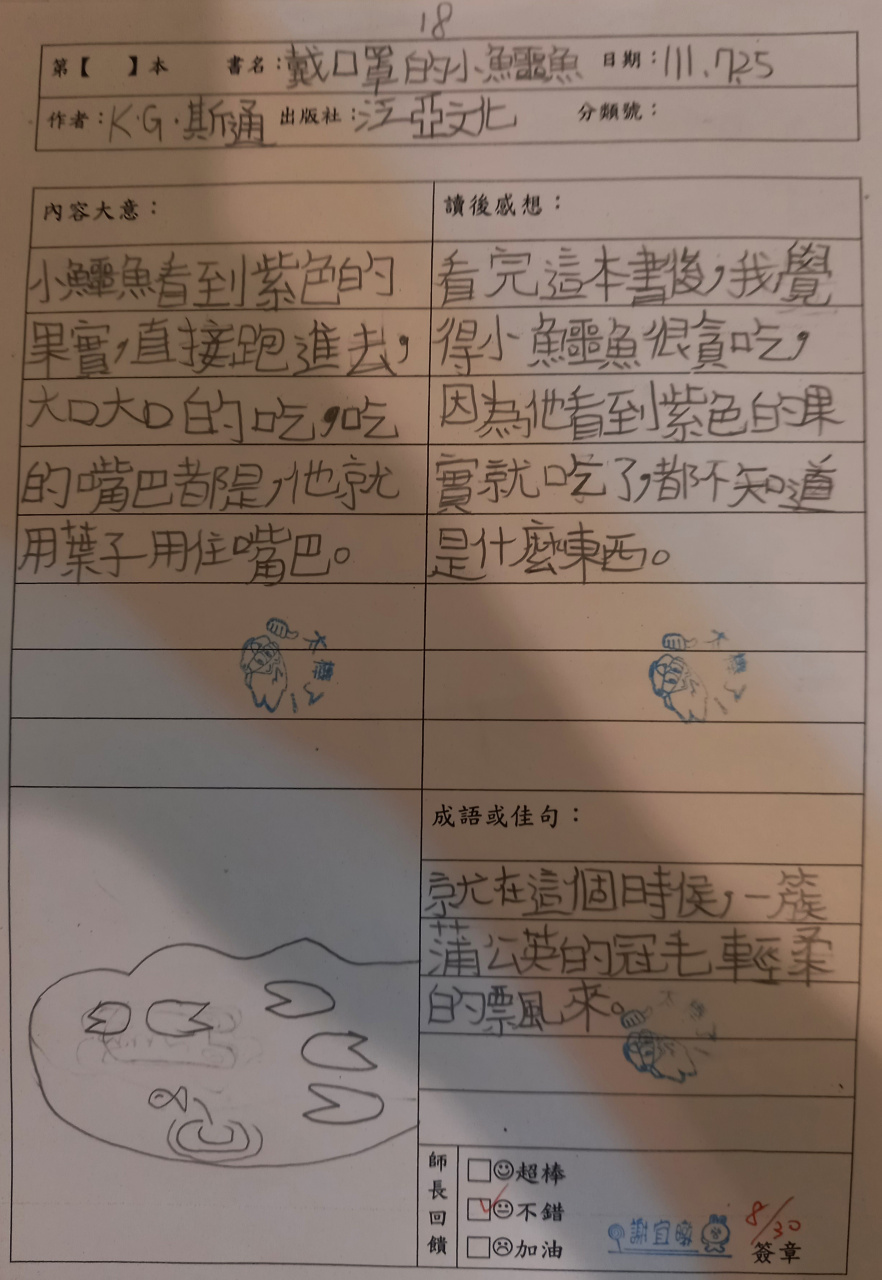 18
第【 】本 書名：戴口罩的小鱷魚 日期：111.7.25
作者：K.G.斯通 出版社：泛亞文化 分類號：
內容大意：
小鱷魚看到紫色的
果實，直接跑進去，
大口大口的吃，吃
的嘴巴都是，他就
用葉子用住嘴巴。
讀後感想：
看完這本書後，我覺
得小鱷魚很貪吃，
因為他看到紫色的果
實就吃了，都不知道
是什麼東西。
太棒了！
太棒了！
成語或佳句：
就在這個時侯，一簇
蒲公英的冠毛輕柔
的飄風來。
太棒了！
師長回饋
超棒
不錯
加油
謝宜
8/30
簽章